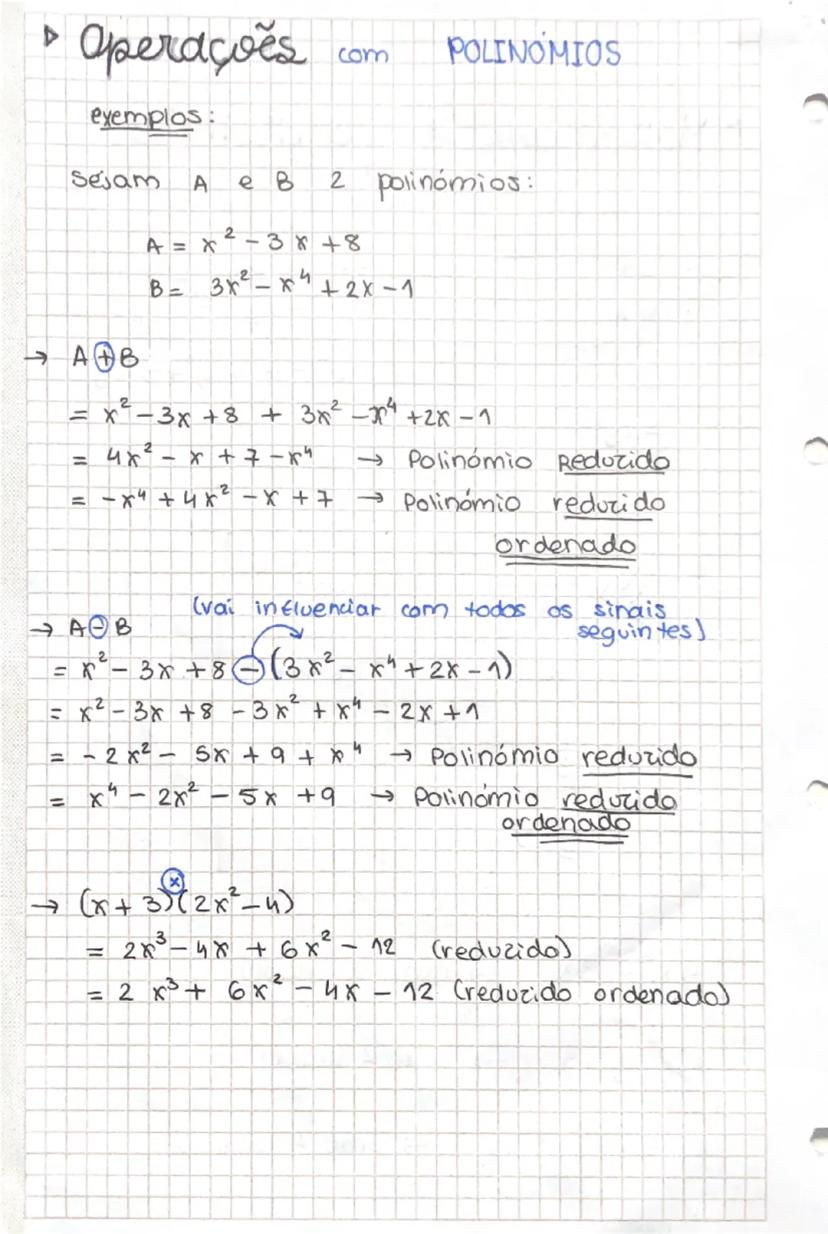 ▷ Operações com POLINÓMIOS
exemplos:
Sejam A e B 2 polinómios:
A = x² - 3x + 8
B = 3x² - x⁴ + 2x - 1
→ A ⊕ B
= x² - 3x + 8 + 3x² - x⁴ + 2x - 1
= 4x² - x + 7 - x⁴ → Polinómio Reduzido
= -x⁴ + 4x² - x + 7 → Polinómio reduzido
ordenado
(vai influenciar com todos os sinais
→ A ⊖ B seguintes)
= x² - 3x + 8 ⊖ (3x² - x⁴ + 2x - 1)
= x² - 3x + 8 - 3x² + x⁴ - 2x + 1
= - 2x² - 5x + 9 + x⁴ → Polinómio reduzido
= x⁴ - 2x² - 5x + 9 → Polinómio reduzido
ordenado
→ (x + 3) ⊗ (2x² - 4)
= 2x³ - 4x + 6x² - 12 (reduzido)
= 2x³ + 6x² - 4x - 12 (reduzido ordenado)